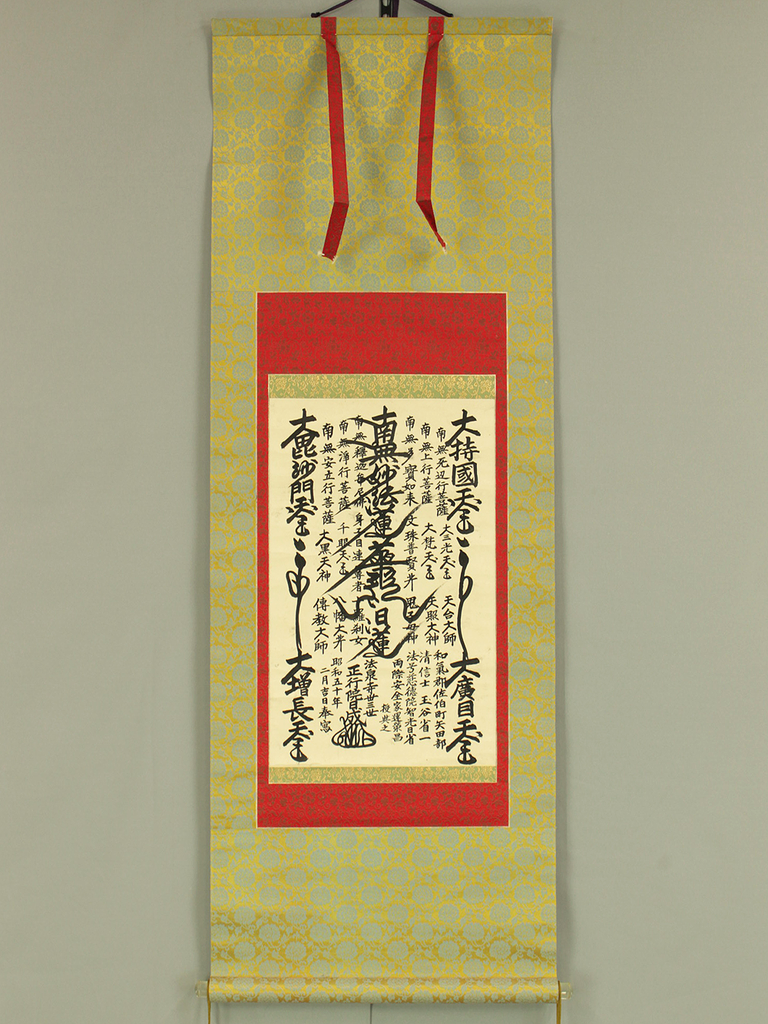 大持國天王
南無無辺行菩薩
大三光天王
天台大師
南無上行菩薩
大梵天王
天照大神
南無多寶如来
文珠普賢等
鬼子母神
南無妙法蓮華経
日蓮
南無釋迦牟尼佛
身子目連尊者
十羅刹女
南無浄行菩薩
千眼天王
八幡大井
南無安立行菩薩
大黒天神
傳教大師
大毘沙門天王
大廣目天王
和氣郡佐伯町矢田部
清信士 玉谷省一
法号慈徳院智光日省
両際安全家運栄昌
授与之
法泉寺廿三世
正行院日盛
昭和五十年
二月吉日奉寫
大増長天王